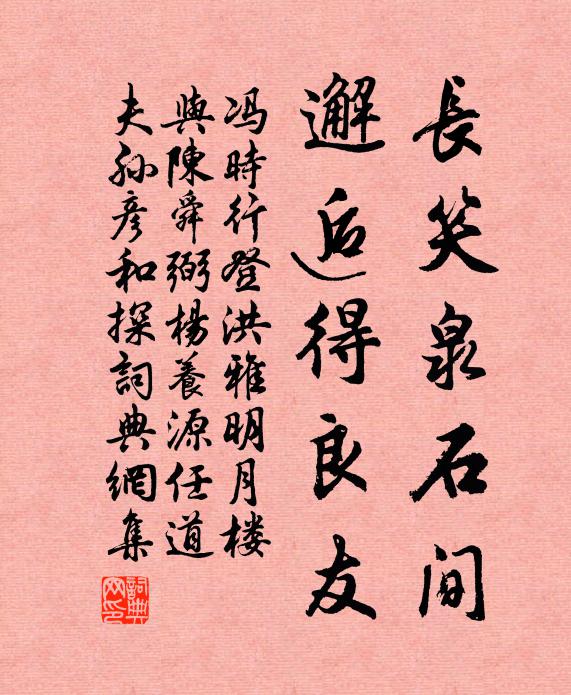 長笑泉石间
邂逅得良友
冯時行登洪雅明月楼
與陳舜弼楊養源任道
夫孙彦和探詞典網集
詞典网印